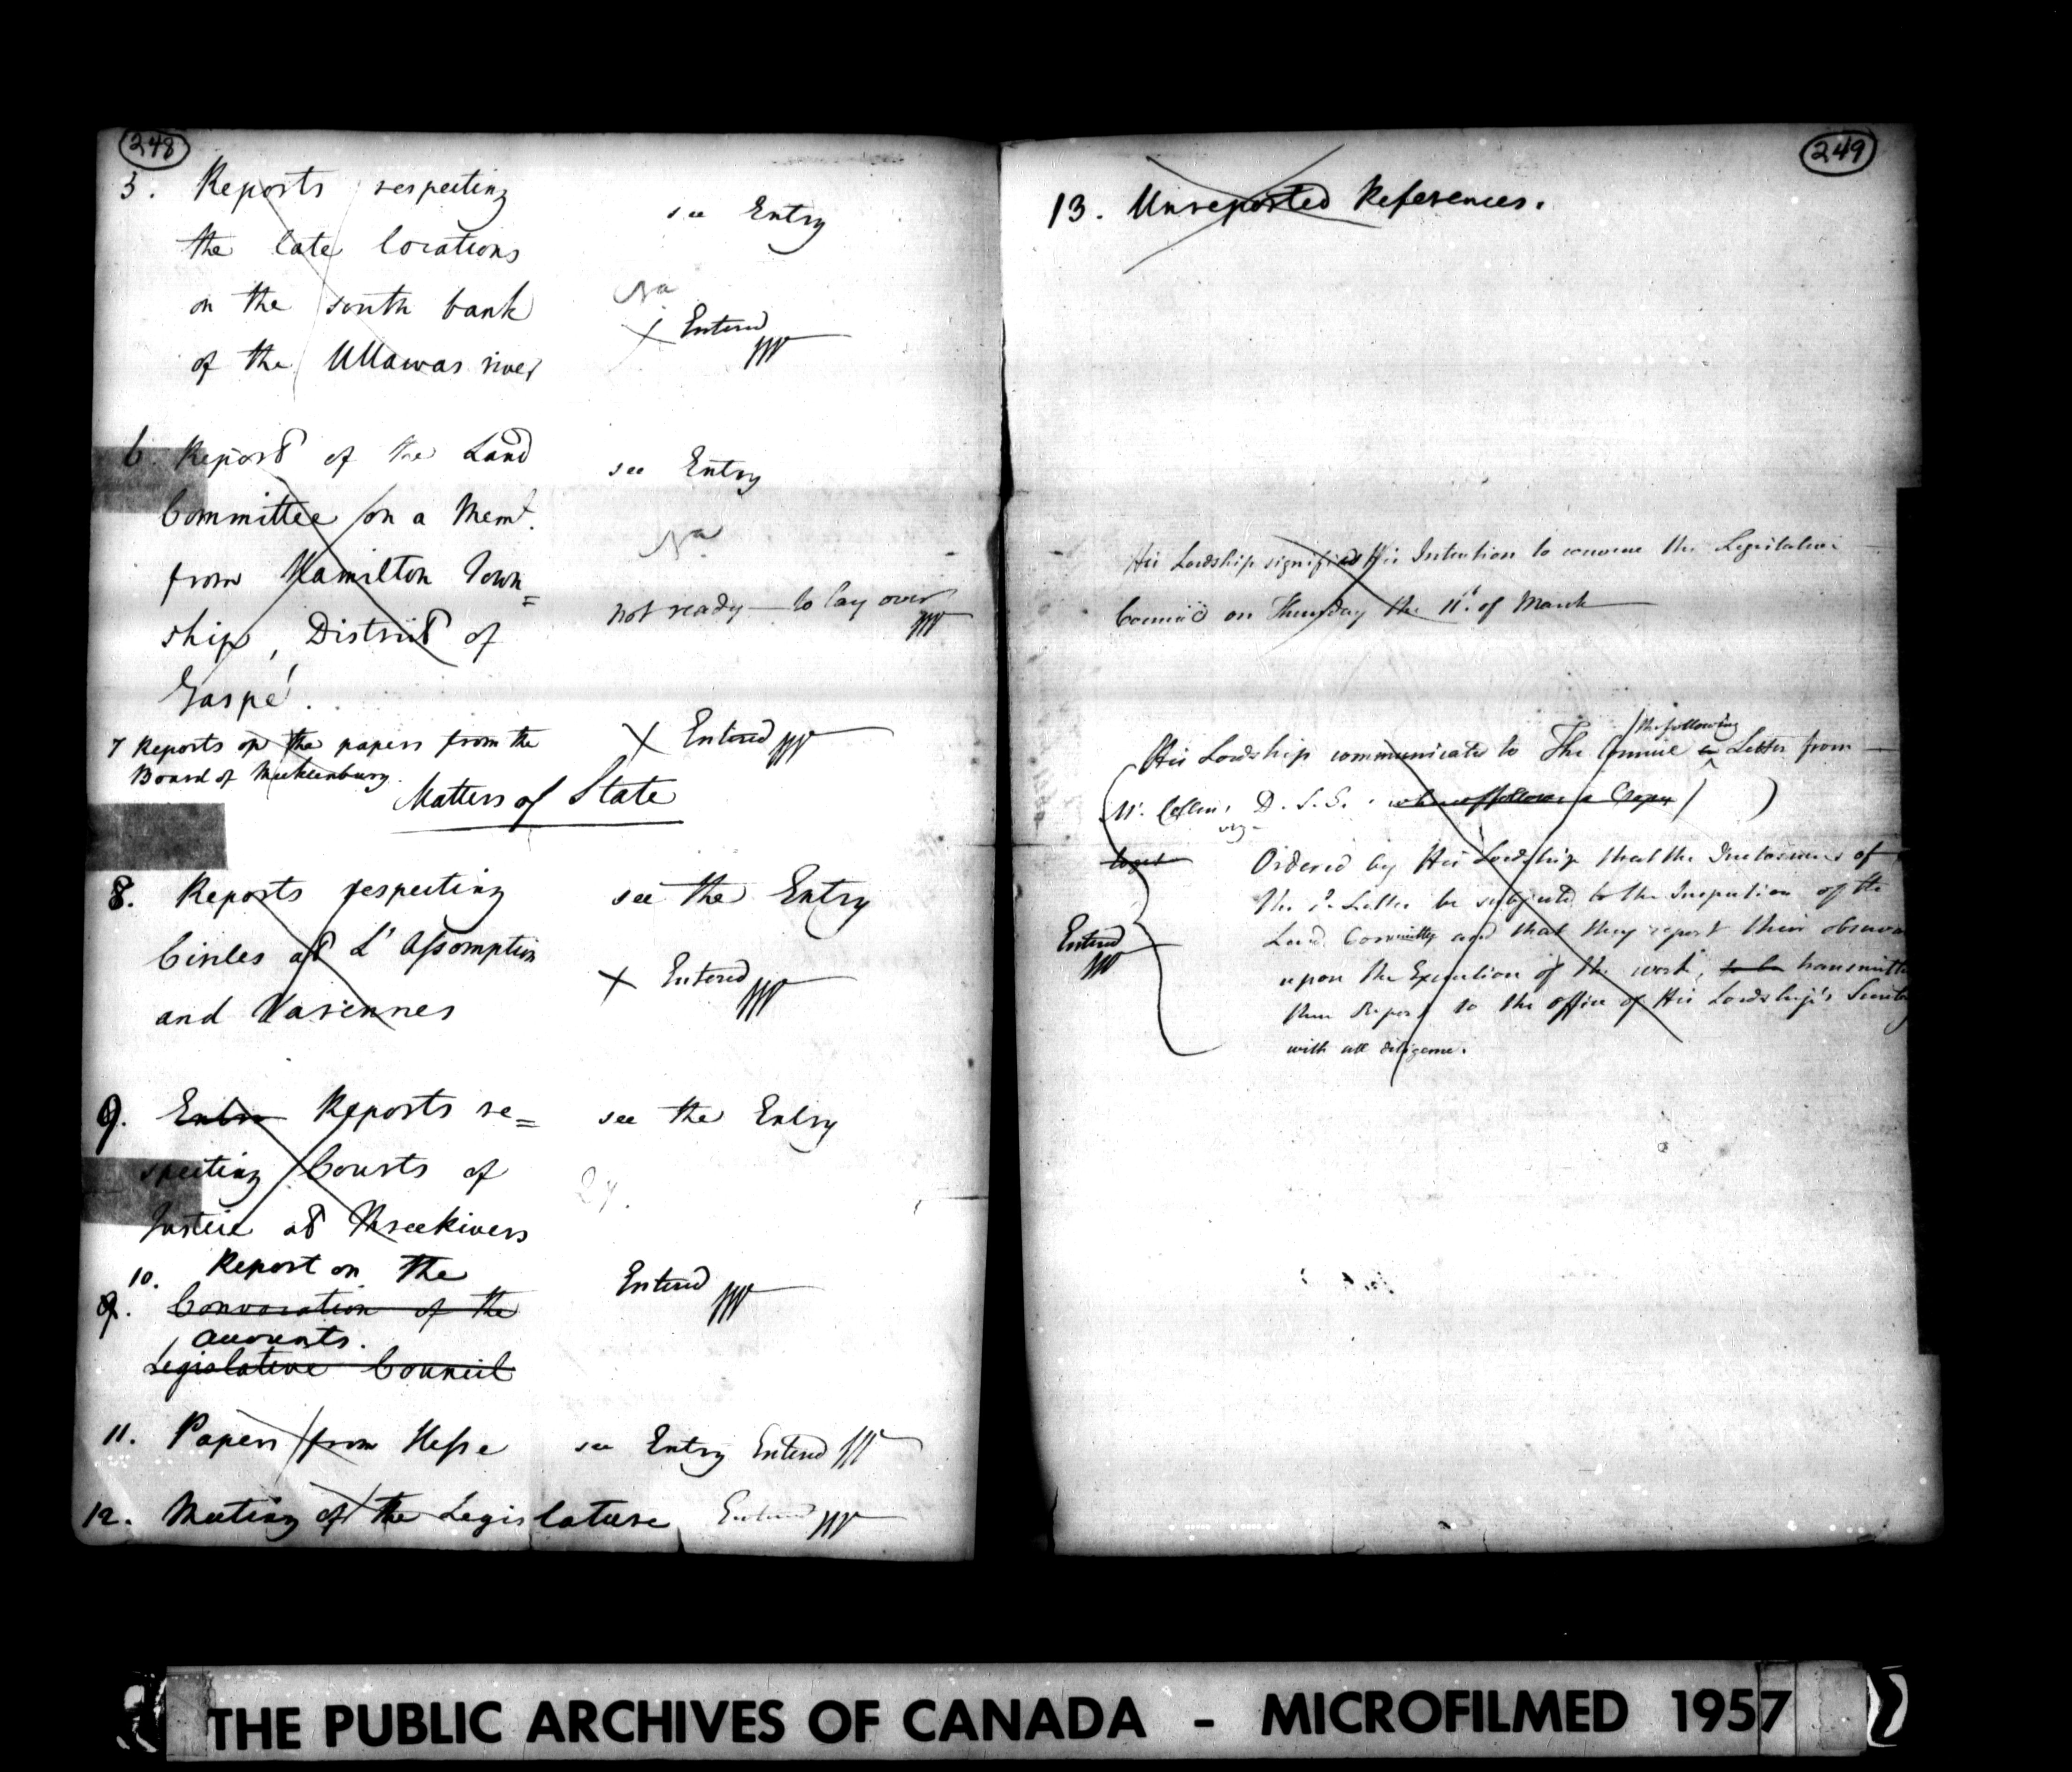 248
5. Reports respecting
the late locations
on the south bank
of the Uttawas river
see Entry
Na
x Entered
6. Report of the Land
Committee on a Meml.
from Hamilton Town=
ship, District of
Gaspé.
see Entry
Na
not ready — to lay over
7 Reports on the papers from the
Board of Mecklenburg.
x Entered
Matters of State
8. Reports respecting
Circles at L'Assomption
and Varennes
see the Entry
x Entered
9. Entry Reports re=
specting Courts of
Justice at Threerivers
see the Entry
10. Report on the
9. Convocation of the
accounts.
Legislative Council
Entered
11. Papers from Hesse see Entry Entered
12. Meeting of the Legislature Entered
249
13. Unreported References.
His Lordship signified His Intention to convene the Legislative
Council on Thursday the 11th. of March
the following
His Lordship communicated to The Council a Letter from
Mr. Collins, D. S. G.
Ordered by His Lordship that the Inclosures of
the sd. Letter be subjected to the Inspection of the
Land Committee and that they report their observa
upon the Execution of the work, to be transmitt
their Report to the office of His Lordship's Secreta
with all diligence.
Entered
THE PUBLIC ARCHIVES OF CANADA - MICROFILMED 1957